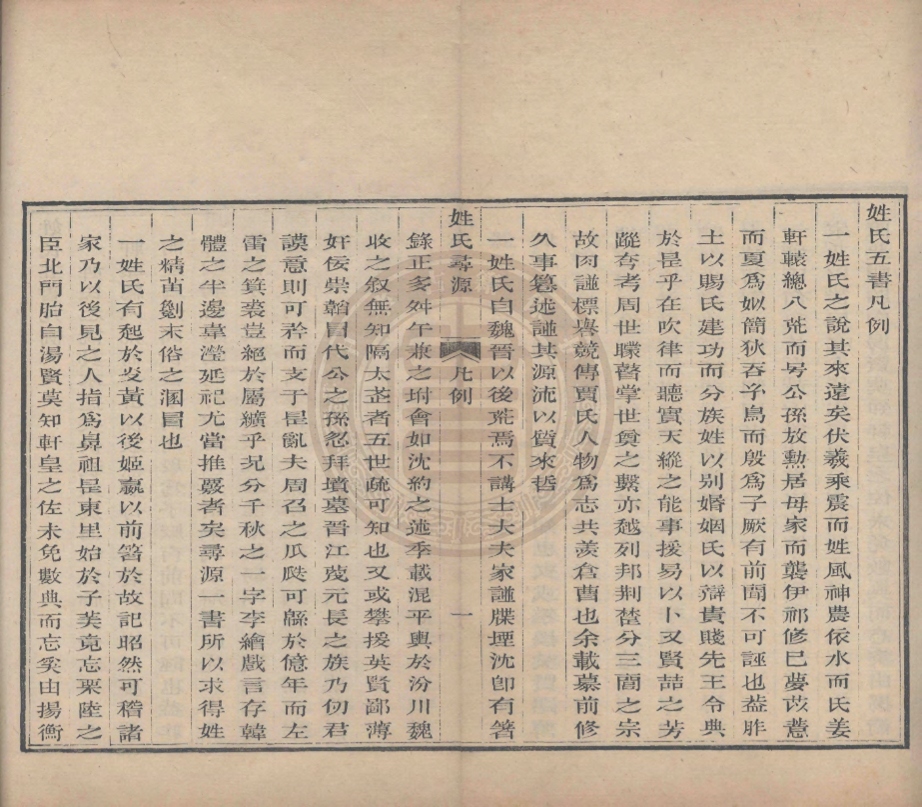 姓氏五書凡例
一姓氏之說其來遠矣伏羲乘震而姓風神農依水而氏姜
軒轅總八荒而号公孫放勳居母家而襲伊祁修巳夢苡薏
而夏爲姒簡狄吞子鳥而殷爲子厥有前聞不可誣也葢胙
土以賜氏建功而分族姓以别婚姻氏以辯貴賤先王令典
於是乎在吹律而聽實天縱之能事援易以卜又賢喆之芳
蹤夸考周世矇瞽掌世奠之繫亦越列邦荆楚分三閭之宗
故囙謹標譽競傳賈氏人物爲志共羨倉曹也余載慕前修
久事簒述謹其源流以質來哲
一姓氏自魏晉以後荒焉不講士大夫家謹牒堙沈卽有箸
姓氏尋源 凡例 一
錄正多舛午兼之坿會如沈約之述季載混平輿於汾川魏
收之叙無知隔太丠者五世疏可知也又或攀援英賢鄙薄
奸佞崇韜冒代公之孫忽拜墳墓晉江蔑元長之族乃仞君
謨意則可矜而支于是亂夫周召之瓜瓞可縣於億年而左
雷之箕裘豈絕於屬纊乎況分千秋之一字李繪戲言存韓
體之半邊韋瀅延祀尤當推覈者矣尋源一書所以求得姓
之精苗劉末俗之溷冒也
一姓氏有起於炎黃以後姬嬴以前箸於故記昭然可稽諸
家乃以後見之人指爲鼻祖是東里始於子美竟忘栗陸之
臣北門胎自湯賢莫知軒皇之佐未免數典而忘矣由揚衡